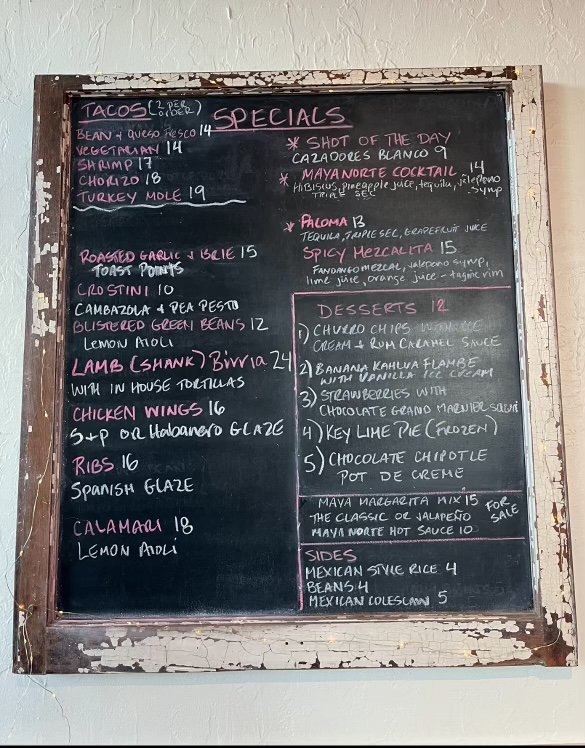 TACOS (2 PER ORDER)
SPECIALS
BEAN + QUESO FRESCO 14
VEGETARIAN 14
SHRIMP 17
CHORIZO 18
TURKEY MOLE 19
ROASTED GARLIC + BRIE 15
TOAST POINTS
CROSTINI 10
CAMBAZOLA + PEA PESTO
BLISTERED GREEN BEANS 12
LEMON AIOLI
LAMB (SHANK) Birria 24
WITH IN HOUSE TORTILLAS
CHICKEN WINGS 16
S+P OR Habanero GLAZE
RIBS 16
SPANISH GLAZE
CALAMARI 18
LEMON AIOLI
* SHOT OF THE DAY
CAZADORES BLANCO 9
* MAYA NORTE COCKTAIL 14
HIBISCUS, pineapple juice, tequila, jalepeno syrup
TRIPLE SEC
* PALOMA 13
TEQUILA, TRIPLE SEC, GRAPEFRUIT JUICE
SPICY MEZCALITA 15
FANDANGO MEZCAL, jalepeno syrup,
lime juice, orange juice - tagine rim
DESSERTS 12
1) CHURRO CHIPS WITH ICE
CREAM + RUM CARAMEL SAUCE
2) BANANA KAHLUA FLAMBE
WITH VANILLA ICE CREAM
3) STRAWBERRIES WITH
CHOCOLATE GRAND MARNIER SAUCE
4) KEY LIME PIE (FROZEN)
5) CHOCOLATE CHIPOTLE
POT DE CREME
MAYA MARGARITA MIX 15
THE CLASSIC OR JALAPEÑO
MAYA NORTE HOT SAUCE 10
FOR
SALE
SIDES
MEXICAN STYLE RICE 4
BEANS 4
MEXICAN COLESLAW 5